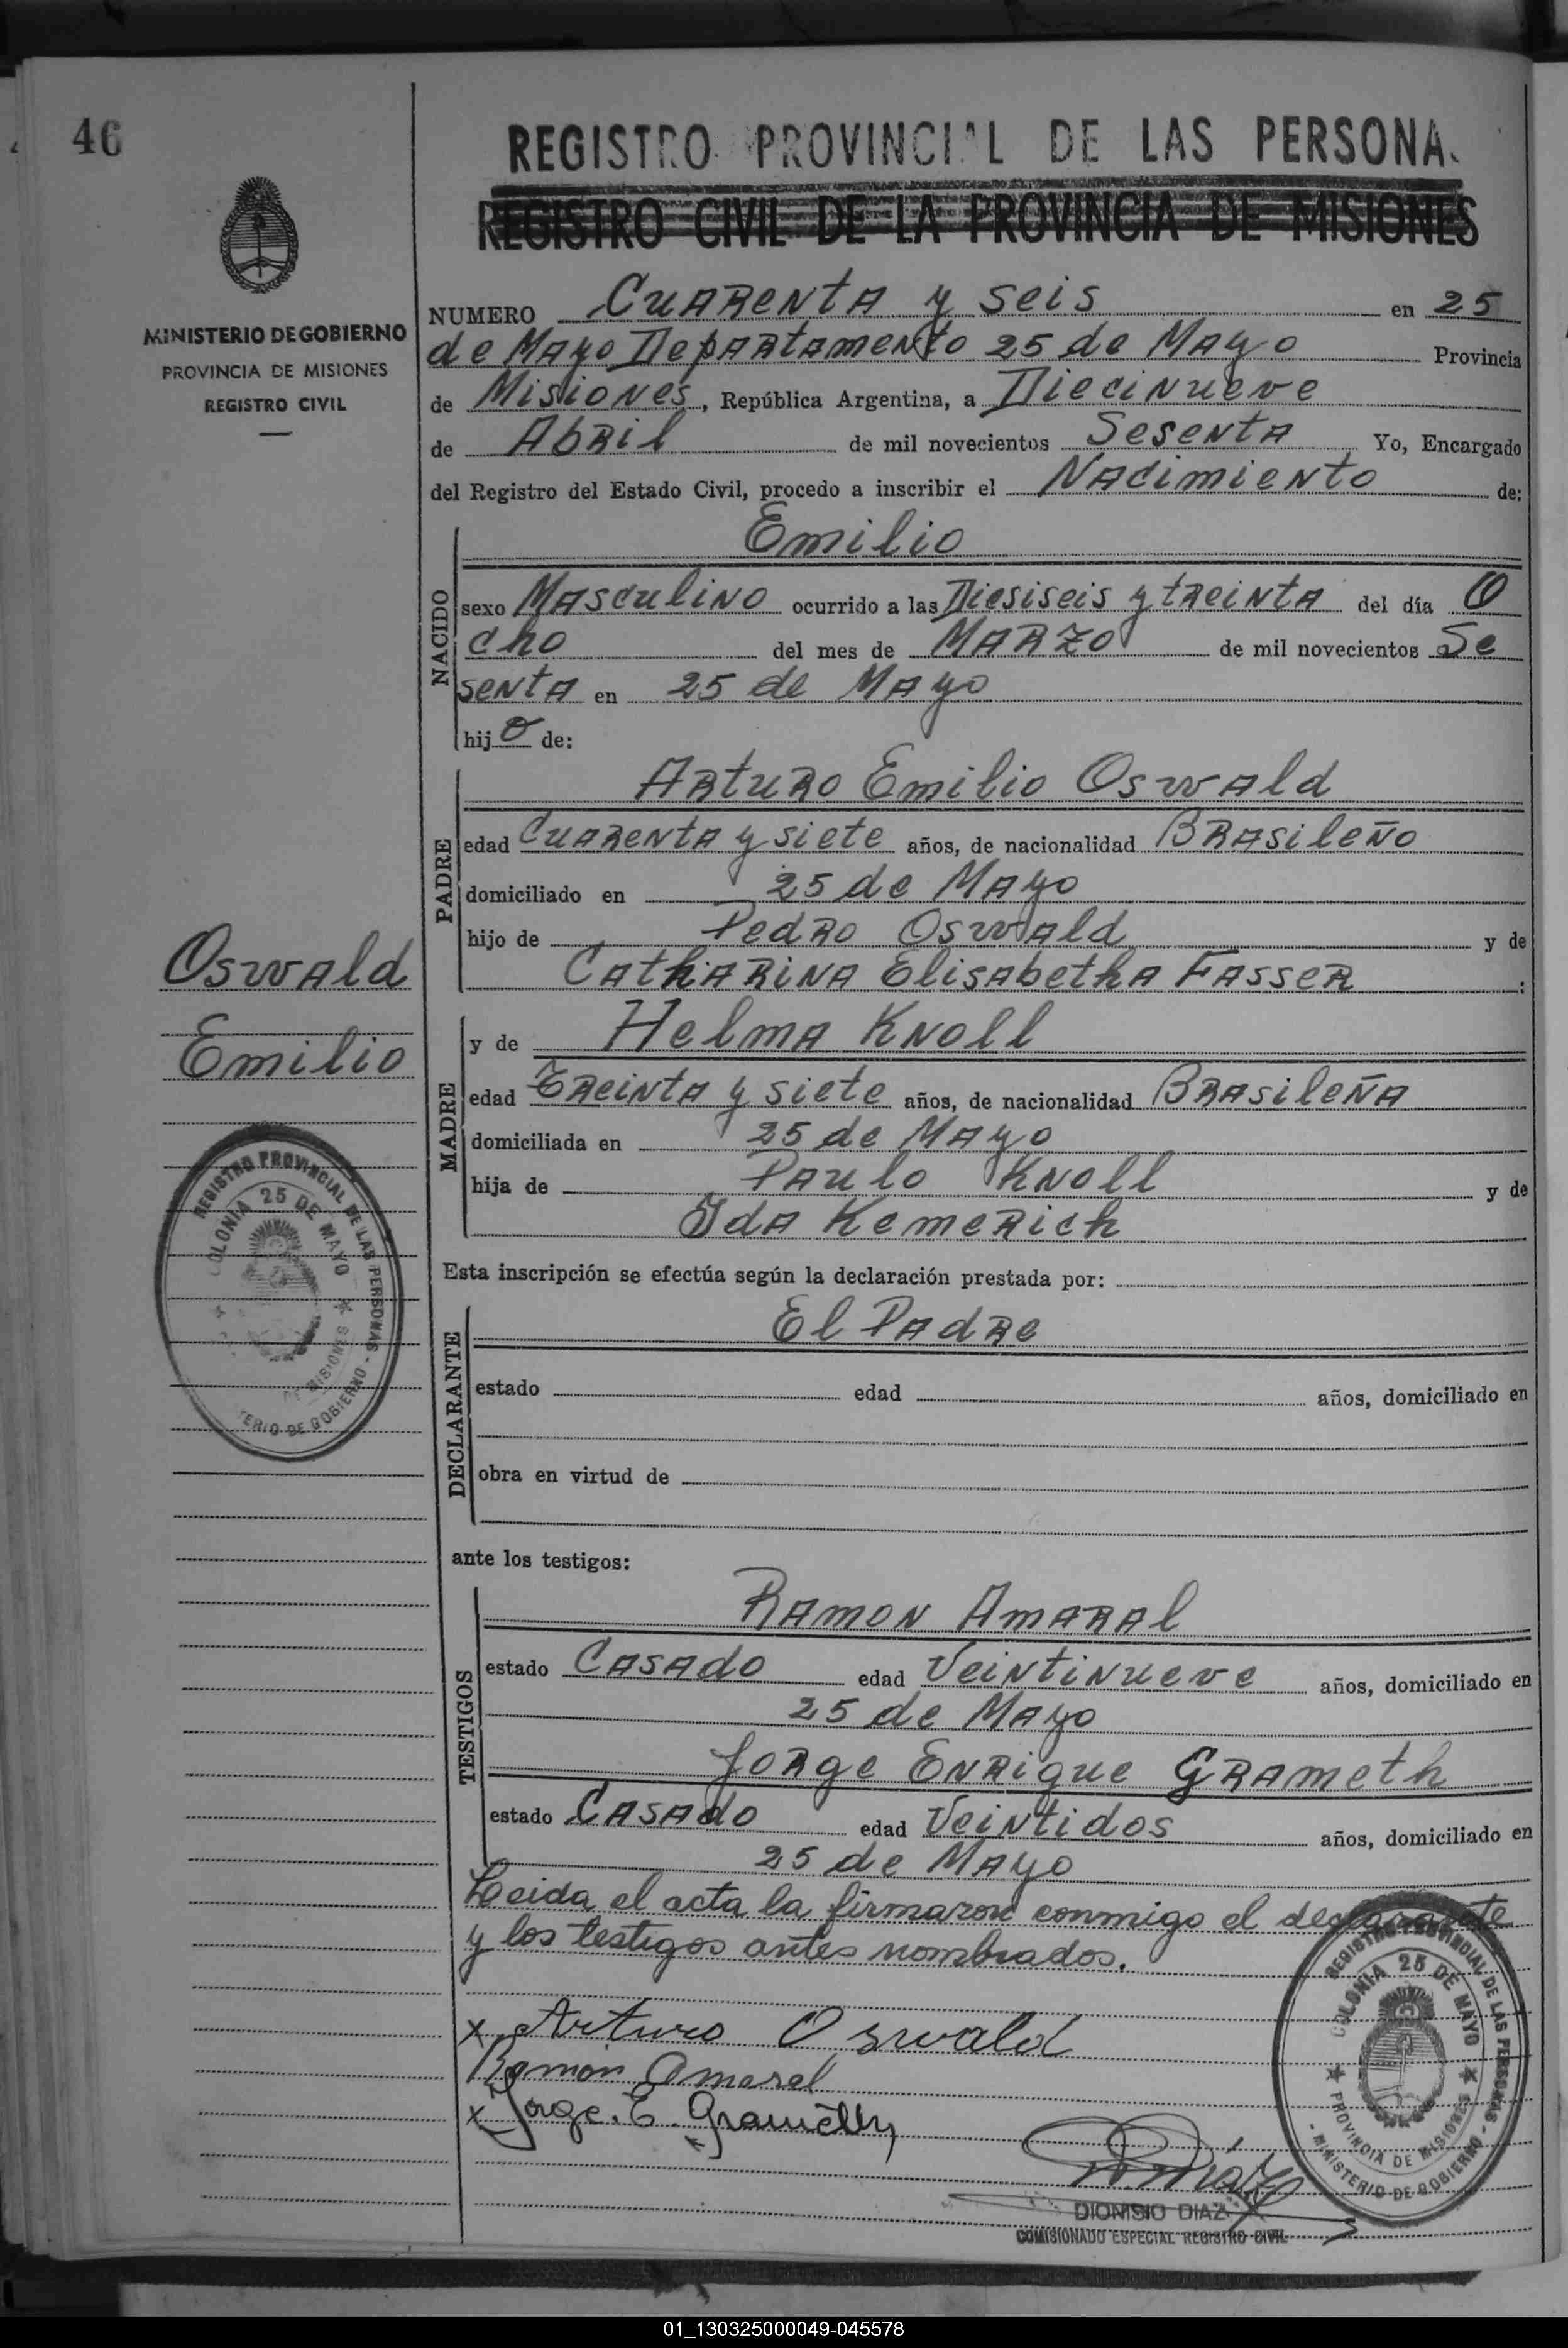 46
REGISTRO PROVINCIAL DE LAS PERSONA
REGISTRO CIVIL DE LA PROVINCIA DE MISIONES
MINISTERIO DE GOBIERNO
PROVINCIA DE MISIONES
REGISTRO CIVIL
NUMERO Cuarenta y seis en 25
de Mayo Departamento 25 de Mayo Provincia
de Misiones, República Argentina, a Diecinueve
de Abril de mil novecientos Sesenta Yo, Encargado
del Registro del Estado Civil, procedo a inscribir el Nacimiento de:
NACIDO
Emilio
sexo Masculino ocurrido a las Diesiseis y treinta del día O
cho del mes de Marzo de mil novecientos Se
senta en 25 de Mayo
hijo de:
PADRE
Arturo Emilio Oswald
edad Cuarenta y siete años, de nacionalidad Brasileño
domiciliado en 25 de Mayo
hijo de Pedro Oswald y de
Catharina Elisabetha Fasser :
Oswald
Emilio
MADRE
y de Helma Knoll
edad Treinta y siete años, de nacionalidad Brasileña
domiciliada en 25 de Mayo
hija de Paulo Knoll y de
Ida Kemerich
REGISTRO PROVINCIAL DE LAS PERSONAS
COLONIA 25 DE MAYO
MISIONES
TERIO DE GOBIERNO
Esta inscripción se efectúa según la declaración prestada por:
DECLARANTE
El Padre
estado edad años, domiciliado en
obra en virtud de
ante los testigos:
TESTIGOS
Ramon Amaral
estado Casado edad Veintinueve años, domiciliado en
25 de Mayo
Jorge Enrique Grameth
estado Casado edad Veintidos años, domiciliado en
25 de Mayo
Leida el acta la firmaron conmigo el declarante
y los testigos antes nombrados.
x Arturo Oswald
Ramon Amaral
x Jorge. E.
REGISTRO PROVINCIAL DE LAS PERSONAS
COLONIA 25 DE MAYO
PROVINCIA DE MISIONES
- MINISTERIO DE GOBIERNO -
DIONISIO DIAZ
COMISIONADO ESPECIAL REGISTRO CIVIL
01_130325000049-045578